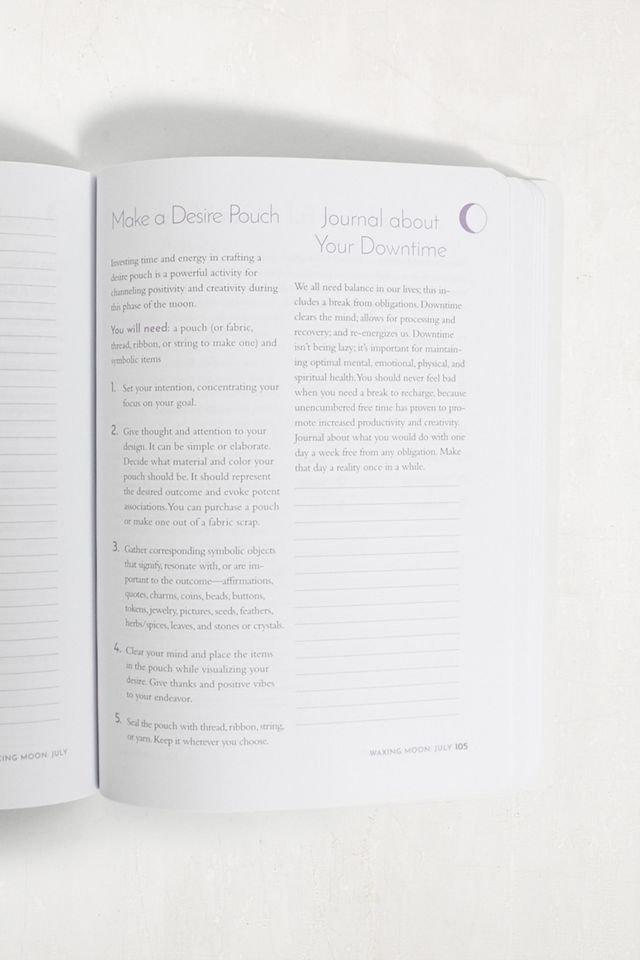 Make a Desire Pouch
Investing time and energy in crafting a
desire pouch is a powerful activity for
channeling positivity and creativity during
this phase of the moon.
You will need: a pouch (or fabric,
thread, ribbon, or string to make one) and
symbolic items
1. Set your intention, concentrating your
focus on your goal.
2. Give thought and attention to your
design. It can be simple or elaborate.
Decide what material and color your
pouch should be. It should represent
the desired outcome and evoke potent
associations. You can purchase a pouch
or make one out of a fabric scrap.
3. Gather corresponding symbolic objects
that signify, resonate with, or are im-
portant to the outcome—affirmations,
quotes, charms, coins, beads, buttons,
tokens, jewelry, pictures, seeds, feathers,
herbs/spices, leaves, and stones or crystals.
4. Clear your mind and place the items
in the pouch while visualizing your
desire. Give thanks and positive vibes
to your endeavor.
5. Seal the pouch with thread, ribbon, string,
or yarn. Keep it wherever you choose.
Journal about
Your Downtime
We all need balance in our lives; this in-
cludes a break from obligations. Downtime
clears the mind; allows for processing and
recovery; and re-energizes us. Downtime
isn't being lazy; it's important for maintain-
ing optimal mental, emotional, physical, and
spiritual health. You should never feel bad
when you need a break to recharge, because
unencumbered free time has proven to pro-
mote increased productivity and creativity.
Journal about what you would do with one
day a week free from any obligation. Make
that day a reality once in a while.
MOON: JULY
WAXING MOON: JULY 105